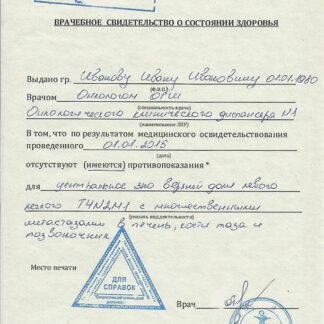 ВРАЧЕБНОЕ СВИДЕТЕЛЬСТВО О СОСТОЯНИИ ЗДОРОВЬЯ
Выдано гр. Иванову Ивану Ивановичу 01.01.1980
(ф.и.о.)
Врачом Онкологом ОРШ
(специальность врача)
Онкологического клинического диспансера N1
(наименование ЛПУ)
В том, что по результатом медицинского освидетельствования
проведенного 01.01.2015
(дата)
отсутствуют (имеются) противопоказания *
для центральное зно верхней доли левого
легкого T4N2M1 с множественными
(указать вид деятельности)
метастазами в печень, кости таза и
позвоночник
Место печати
ДЛЯ
СПРАВОК
Врач